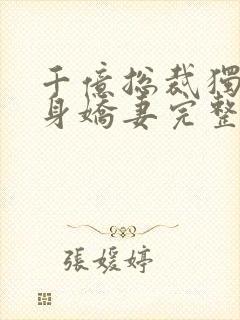 千億総裁獨
身嬌妻完整
張媛婷